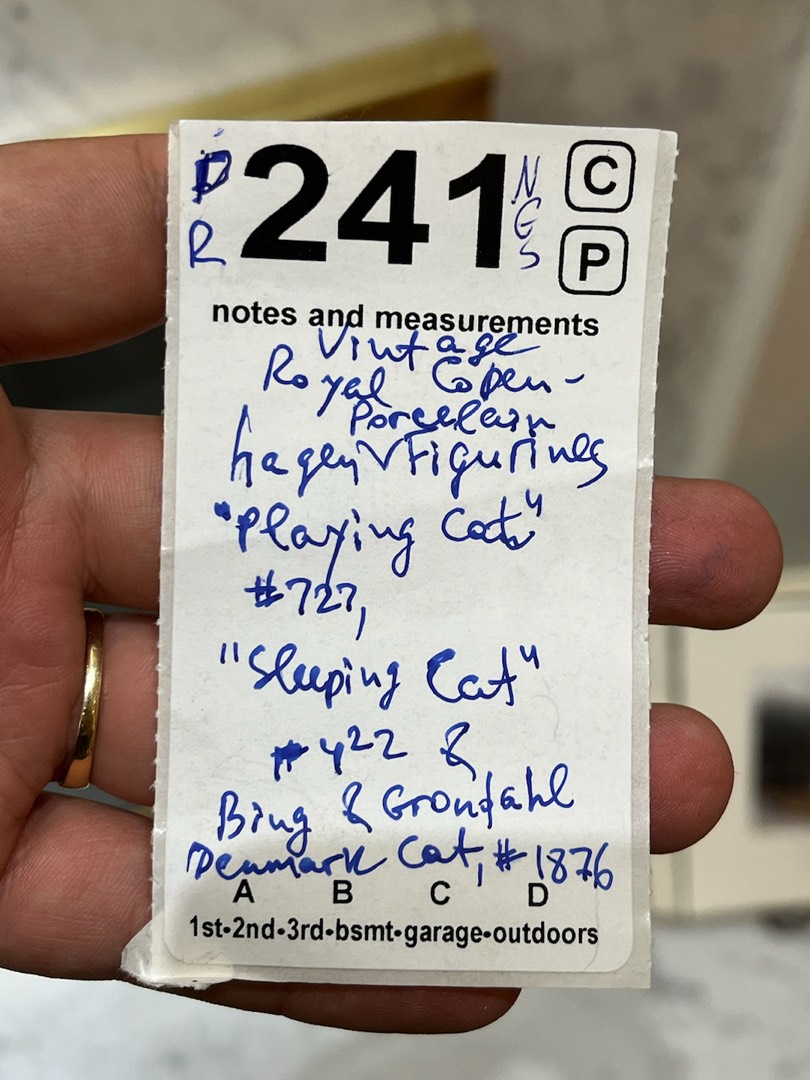 D 241 N C
R G P
S
notes and measurements
Vintage
Royal Copen-
Porcelain
hagen V Figurines
"Playing Cats"
#727,
"Sleeping Cat"
#422 &
Bing & Grondahl
Denmark Cat, #1876
A B C D
1st•2nd•3rd•bsmt•garage•outdoors